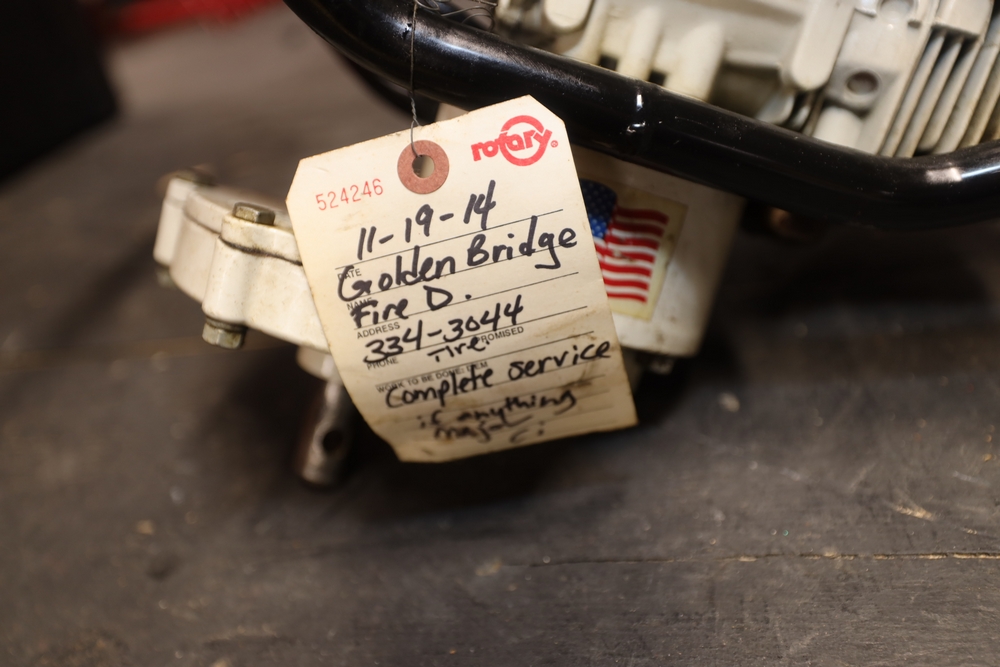 rotary
524246
11-19-14
DATE
Golden Bridge
NAME
Fire D.
ADDRESS
334-3044
PHONE PROMISED
WORK TO BE DONE
Complete service
if anything